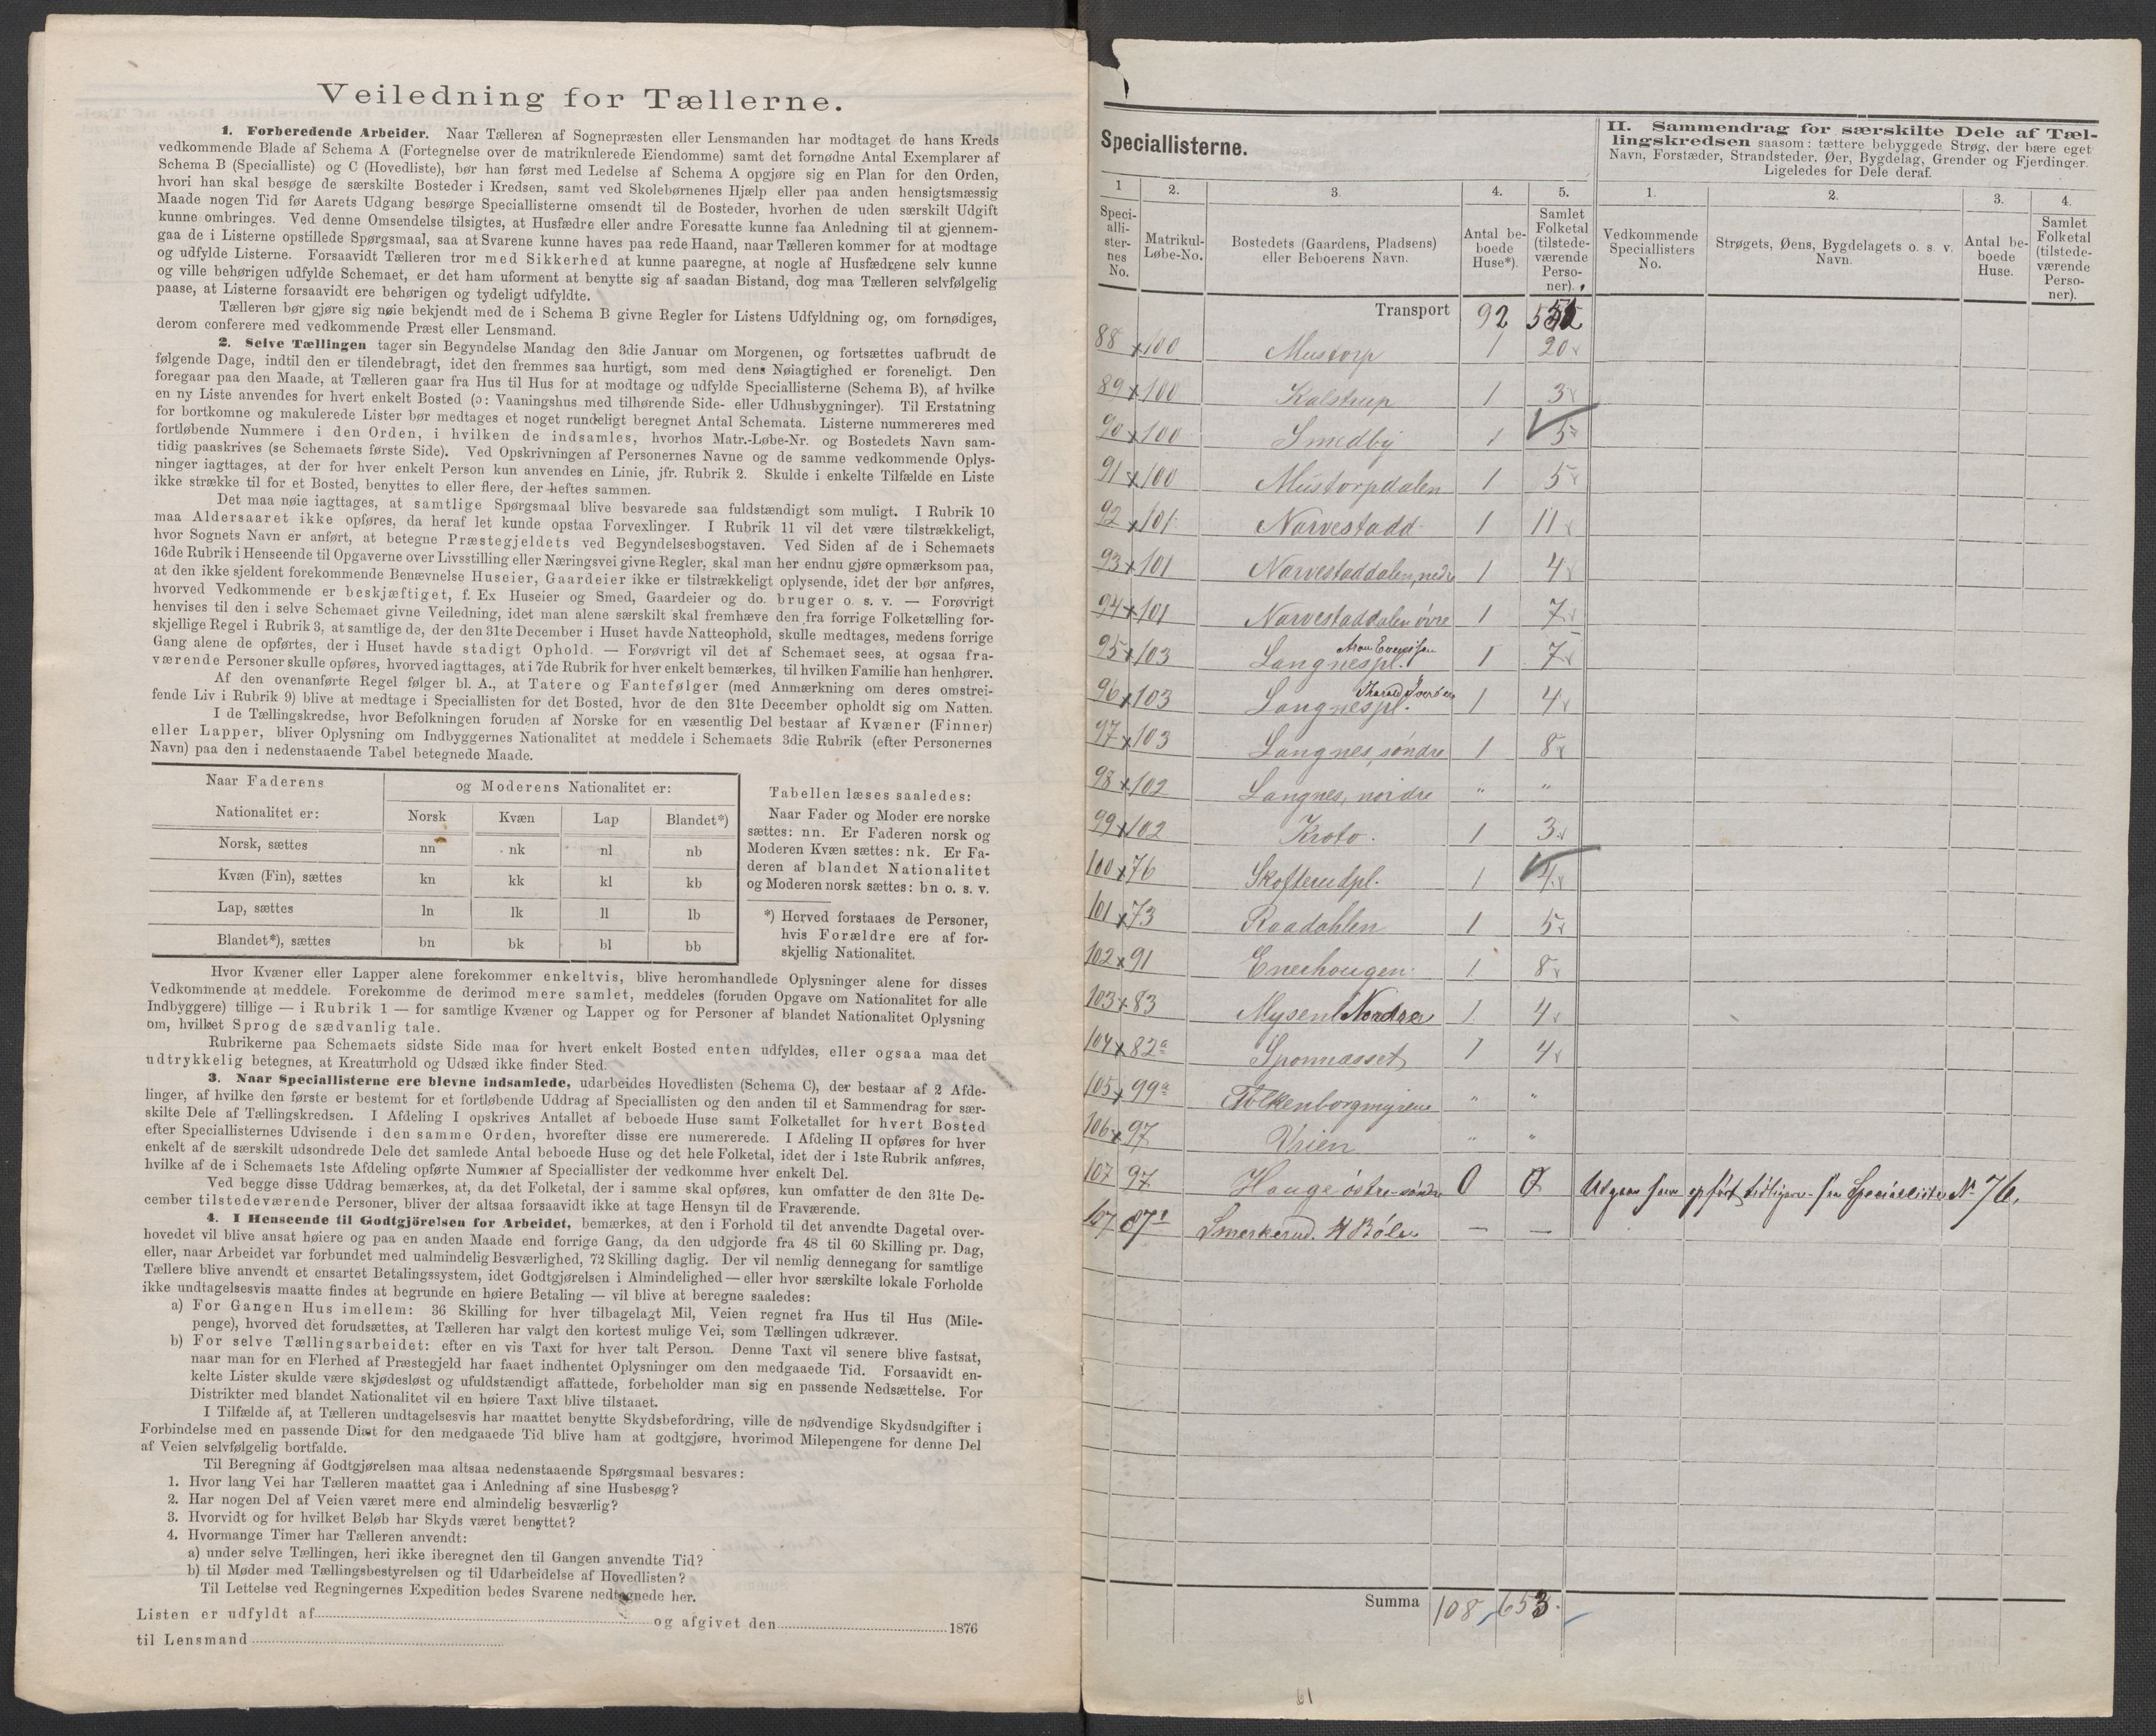 Veiledning for Tællerne.
1. Forberedende Arbeider. Naar Tælleren af Sognepræsten eller Lensmanden har modtaget de hans Kreds
vedkommende Blade af Schema A (Fortegnelse over de matrikulerede Eiendomme) samt det fornødne Antal Exemplarer af
Schema B (Specialliste) og C (Hovedliste), bør han først med Ledelse af Schema A opgjøre sig en Plan for den Orden,
hvori han skal besøge de særskilte Bosteder i Kredsen, samt ved Skolebørnenes Hjælp eller paa anden hensigtsmæssig
Maade nogen Tid før Aarets Udgang besørge Speciallisterne omsendt til de Bosteder, hvorhen de uden særskilt Udgift
kunne ombringes. Ved denne Omsendelse tilsigtes, at Husfædre eller andre Foresatte kunne faa Anledning til at gjennem-
gaa de i Listerne opstillede Spørgsmaal, saa at Svarene kunne haves paa rede Haand, naar Tælleren kommer for at modtage
og udfylde Listerne. Forsaavidt Tælleren tror med Sikkerhed at kunne paaregne, at nogle af Husfædrene selv kunne
og ville behørigen udfylde Schemaet, er det ham uforment at benytte sig af saadan Bistand, dog maa Tælleren selvfølgelig
paase, at Listerne forsaavidt ere behørigen og tydeligt udfyldte.
Tælleren bør gjøre sig nøie bekjendt med de i Schema B givne Regler for Listens Udfyldning og, om fornødiges,
derom conferere med vedkommende Præst eller Lensmand.
2. Selve Tællingen tager sin Begyndelse Mandag den 3die Januar om Morgenen, og fortsættes uafbrudt de
følgende Dage, indtil den er tilendebragt, idet den fremmes saa hurtigt, som med dens Nøiagtighed er foreneligt. Den
foregaar paa den Maade, at Tælleren gaar fra Hus til Hus for at modtage og udfylde Speciallisterne (Schema B), af hvilke
en ny Liste anvendes for hvert enkelt Bosted (ɔ: Vaaningshus med tilhørende Side- eller Udhusbygninger). Til Erstatning
for bortkomne og makulerede Lister bør medtages et noget rundeligt beregnet Antal Schemata. Listerne nummereres med
fortløbende Nummere i den Orden, i hvilken de indsamles, hvorhos Matr.-Løbe-Nr. og Bostedets Navn sam-
tidig paaskrives (se Schemaets første Side). Ved Opskrivningen af Personernes Navne og de samme vedkommende Oplys-
ninger iagttages, at der for hver enkelt Person kun anvendes en Linie, jfr. Rubrik 2. Skulde i enkelte Tilfælde en Liste
ikke strække til for et Bosted, benyttes to eller flere, der heftes sammen.
Det maa nøie iagttages, at samtlige Spørgsmaal blive besvarede saa fuldstændigt som muligt. I Rubrik 10
maa Aldersaaret ikke opføres, da heraf let kunde opstaa Forvexlinger. I Rubrik 11 vil det være tilstrækkeligt,
hvor Sognets Navn er anført, at betegne Præstegjeldets ved Begyndelsesbogstaven. Ved Siden af de i Schemaets
16de Rubrik i Henseende til Opgaverne over Livsstilling eller Næringsvei givne Regler, skal man her endnu gjøre opmærksom paa,
at den ikke sjeldent forekommende Benævnelse Huseier, Gaardeier ikke er tilstrækkeligt oplysende, idet der bør anføres,
hvorved Vedkommende er beskjæftiget, f. Ex Huseier og Smed, Gaardeier og do. bruger o. s. v. — Forøvrigt
henvises til den i selve Schemaet givne Veiledning, idet man alene særskilt skal fremhæve den fra forrige Folketælling for-
skjellige Regel i Rubrik 3, at samtlige de, der den 31te December i Huset havde Natteophold, skulle medtages, medens forrige
Gang alene de opførtes, der i Huset havde stadigt Ophold. — Forøvrigt vil det af Schemaet sees, at ogsaa fra-
værende Personer skulle opføres, hvorved iagttages, at i 7de Rubrik for hver enkelt bemærkes, til hvilken Familie han henhører.
Af den ovenanførte Regel følger bl. A., at Tatere og Fantefølger (med Anmærkning om deres omstrei-
fende Liv i Rubrik 9) blive at medtage i Speciallisten for det Bosted, hvor de den 31te December opholdt sig om Natten.
I de Tællingskredse, hvor Befolkningen foruden af Norske for en væsentlig Del bestaar af Kvæner (Finner)
eller Lapper, bliver Oplysning om Indbyggernes Nationalitet at meddele i Schemaets 3die Rubrik (efter Personernes
Navn) paa den i nedenstaaende Tabel betegnede Maade.
Naar Faderens og Moderens Nationalitet er:
Nationalitet er: Norsk Kvæn Lap Blandet*)
Norsk, sættes nn nk nl nb
Kvæn (Fin), sættes kn kk kl kb
Lap, sættes ln lk ll lb
Blandet*), sættes bn bk bl bb
Tabellen læses saaledes:
Naar Fader og Moder ere norske
sættes: nn. Er Faderen norsk og
Moderen Kvæn sættes: nk. Er Fa-
deren af blandet Nationalitet
og Moderen norsk sættes: bn o. s. v.
*) Herved forstaaes de Personer,
hvis Forældre ere af for-
skjellig Nationalitet.
Hvor Kvæner eller Lapper alene forekommer enkeltvis, blive heromhandlede Oplysninger alene for disses
Vedkommende at meddele. Forekomme de derimod mere samlet, meddeles (foruden Opgave om Nationalitet for alle
Indbyggere) tillige — i Rubrik 1 — for samtlige Kvæner og Lapper og for Personer af blandet Nationalitet Oplysning
om, hvilket Sprog de sædvanlig tale.
Rubrikerne paa Schemaets sidste Side maa for hvert enkelt Bosted enten udfyldes, eller ogsaa maa det
udtrykkelig betegnes, at Kreaturhold og Udsæd ikke finder Sted.
3. Naar Speciallisterne ere blevne indsamlede, udarbeides Hovedlisten (Schema C), der bestaar af 2 Afde-
linger, af hvilke den første er bestemt for et fortløbende Uddrag af Speciallisten og den anden til et Sammendrag for sær-
skilte Dele af Tællingskredsen. I Afdeling I opskrives Antallet af beboede Huse samt Folketallet for hvert Bosted
efter Speciallisternes Udvisende i den samme Orden, hvorefter disse ere numererede. I Afdeling II opføres for hver
enkelt af de særskilt udsondrede Dele det samlede Antal beboede Huse og det hele Folketal, idet der i 1ste Rubrik anføres,
hvilke af de i Schemaets 1ste Afdeling opførte Nummer af Speciallister der vedkomme hver enkelt Del.
Ved begge disse Uddrag bemærkes, at, da det Folketal, der i samme skal opføres, kun omfatter de den 31te De-
cember tilstedeværende Personer, bliver der altsaa forsaavidt ikke at tage Hensyn til de Fraværende.
4. I Henseende til Godtgjörelsen for Arbeidet, bemærkes, at den i Forhold til det anvendte Dagetal over-
hovedet vil blive ansat høiere og paa en anden Maade end forrige Gang, da den udgjorde fra 48 til 60 Skilling pr. Dag,
eller, naar Arbeidet var forbundet med ualmindelig Besværlighed, 72 Skilling daglig. Der vil nemlig dennegang for samtlige
Tællere blive anvendt et ensartet Betalingssystem, idet Godtgjørelsen i Almindelighed — eller hvor særskilte lokale Forholde
ikke undtagelsesvis maatte findes at begrunde en høiere Betaling — vil blive at beregne saaledes:
a) For Gangen Hus imellem: 36 Skilling for hver tilbagelagt Mil, Veien regnet fra Hus til Hus (Mile-
penge), hvorved det forudsættes, at Tælleren har valgt den kortest mulige Vei, som Tællingen udkræver.
b) For selve Tællingsarbeidet: efter en vis Taxt for hver talt Person. Denne Taxt vil senere blive fastsat,
naar man for en Flerhed af Præstegjeld har faaet indhentet Oplysninger om den medgaaede Tid. Forsaavidt en-
kelte Lister skulde være skjødesløst og ufuldstændigt affattede, forbeholder man sig en passende Nedsættelse. For
Distrikter med blandet Nationalitet vil en høiere Taxt blive tilstaaet.
I Tilfælde af, at Tælleren undtagelsesvis har maattet benytte Skydsbefordring, ville de nødvendige Skydsudgifter i
Forbindelse med en passende Diæt for den medgaaede Tid blive ham at godtgjøre, hvorimod Milepengene for denne Del
af Veien selvfølgelig bortfalde.
Til Beregning af Godtgjørelsen maa altsaa nedenstaaende Spørgsmaal besvares:
1. Hvor lang Vei har Tælleren maattet gaa i Anledning af sine Husbesøg?
2. Har nogen Del af Veien været mere end almindelig besværlig?
3. Hvorvidt og for hvilket Beløb har Skyds været benyttet?
4. Hvormange Timer har Tælleren anvendt:
a) under selve Tællingen, heri ikke iberegnet den til Gangen anvendte Tid?
b) til Møder med Tællingsbestyrelsen og til Udarbeidelse af Hovedlisten?
Til Lettelse ved Regningernes Expedition bedes Svarene nedtegnede her.
Listen er udfyldt af og afgivet den 1876
til Lensmand
Speciallisterne.
II. Sammendrag for særskilte Dele af Tæl-
lingskredsen saasom: tættere bebyggede Strøg, der bære eget
Navn, Forstæder, Strandsteder, Øer, Bygdelag, Grender og Fjerdinger.
Ligeledes for Dele deraf.
1 2. 3. 4. 5. 1. 2. 3. 4.
Speci-
alli-
ster-
nes
No.
Matrikul-
Løbe-No.
Bostedets (Gaardens, Pladsens)
eller Beboerens Navn.
Antal be-
boede
Huse*).
Samlet
Folketal
(tilstede-
værende
Perso-
ner).
Vedkommende
Speciallisters
No.
Strøgets, Øens, Bygdelagets o. s. v.
Navn.
Antal be-
boede
Huse.
Samlet
Folketal
(tilstede-
værende
Perso-
ner).
Transport 92
88 x 100 Mustorp 1 20
89 x 100 Kalstrup 1 3
90 x 100 Smedby 1 5
91 x 100 Mustorpdalen 1 5
92 x 101 Narvestadd 1 11
93 x 101 Narvestaddalen, nedre 1 4
94 x 101 Narvestaddalen øvre 1 7
95 x 103 Langnespl. Aron Evensen 1 7
96 x 103 Langnespl. Harald Iversen 1 4
97 x 103 Langnes, søndre 1 8
98 x 102 Langnes, nordre " "
99 x 102 Kroto. 1 3
100 x 76 Skofterudpl. 1 4
101 x 73 Raadahlen 1 5
102 x 91 Enerhougen 1 8
103 x 83 Mysen Nordre 1 4
104 x 82a Sponnæsset 1 4
105 x 99a Folkenborgmyrene " "
106 x 97 Vrien " "
107 97 Hauge østre-søndre 0 0 Udgaar som opført tidligere - se Specialliste No 76.
107 87 Smerkerud. Bølen — —
Summa 108 653
61